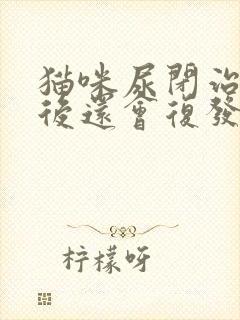 猫咪尿閉治
後還會復發
柠檬呀